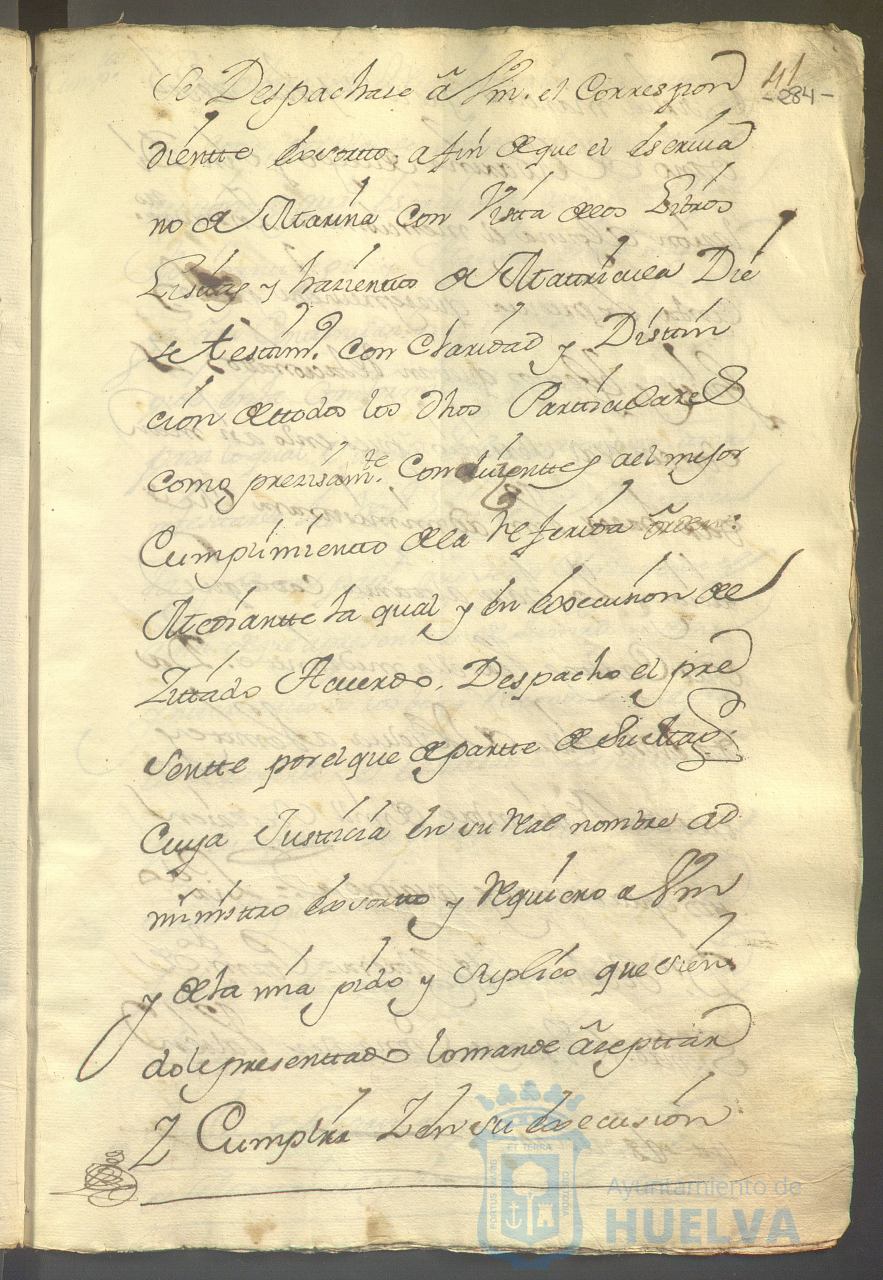 41
-284-
Se Despachase â Vm. el Correspon
diente Exsorto, a fin de que el Escriva
no de Marina con Vista de los Libros
Listas y hazientto de Mattricula Dié
se testim.º con Claridad y Distin
ción de ttodos los dhos Partticulares
como prezisam.te Conduzenttes a el mejor
Cumplimientto de la Referida ôrden:
Mediantte la qual, y en Execuzion del
Zittado Acuerdo, Despacho el pre
sentte por el que de partte de Su Mag.
Cuya Justticia en su Real nombre ad
ministro Exsorto y Requiero a Vm
y de la mia pido y suplico que sien
dole presenttado lo mande âzepttar
Z Cumplir Z en su Execusion
PORTUS MARIS ET TERRAE CUSTODIA
Ayuntamiento de
HUELVA